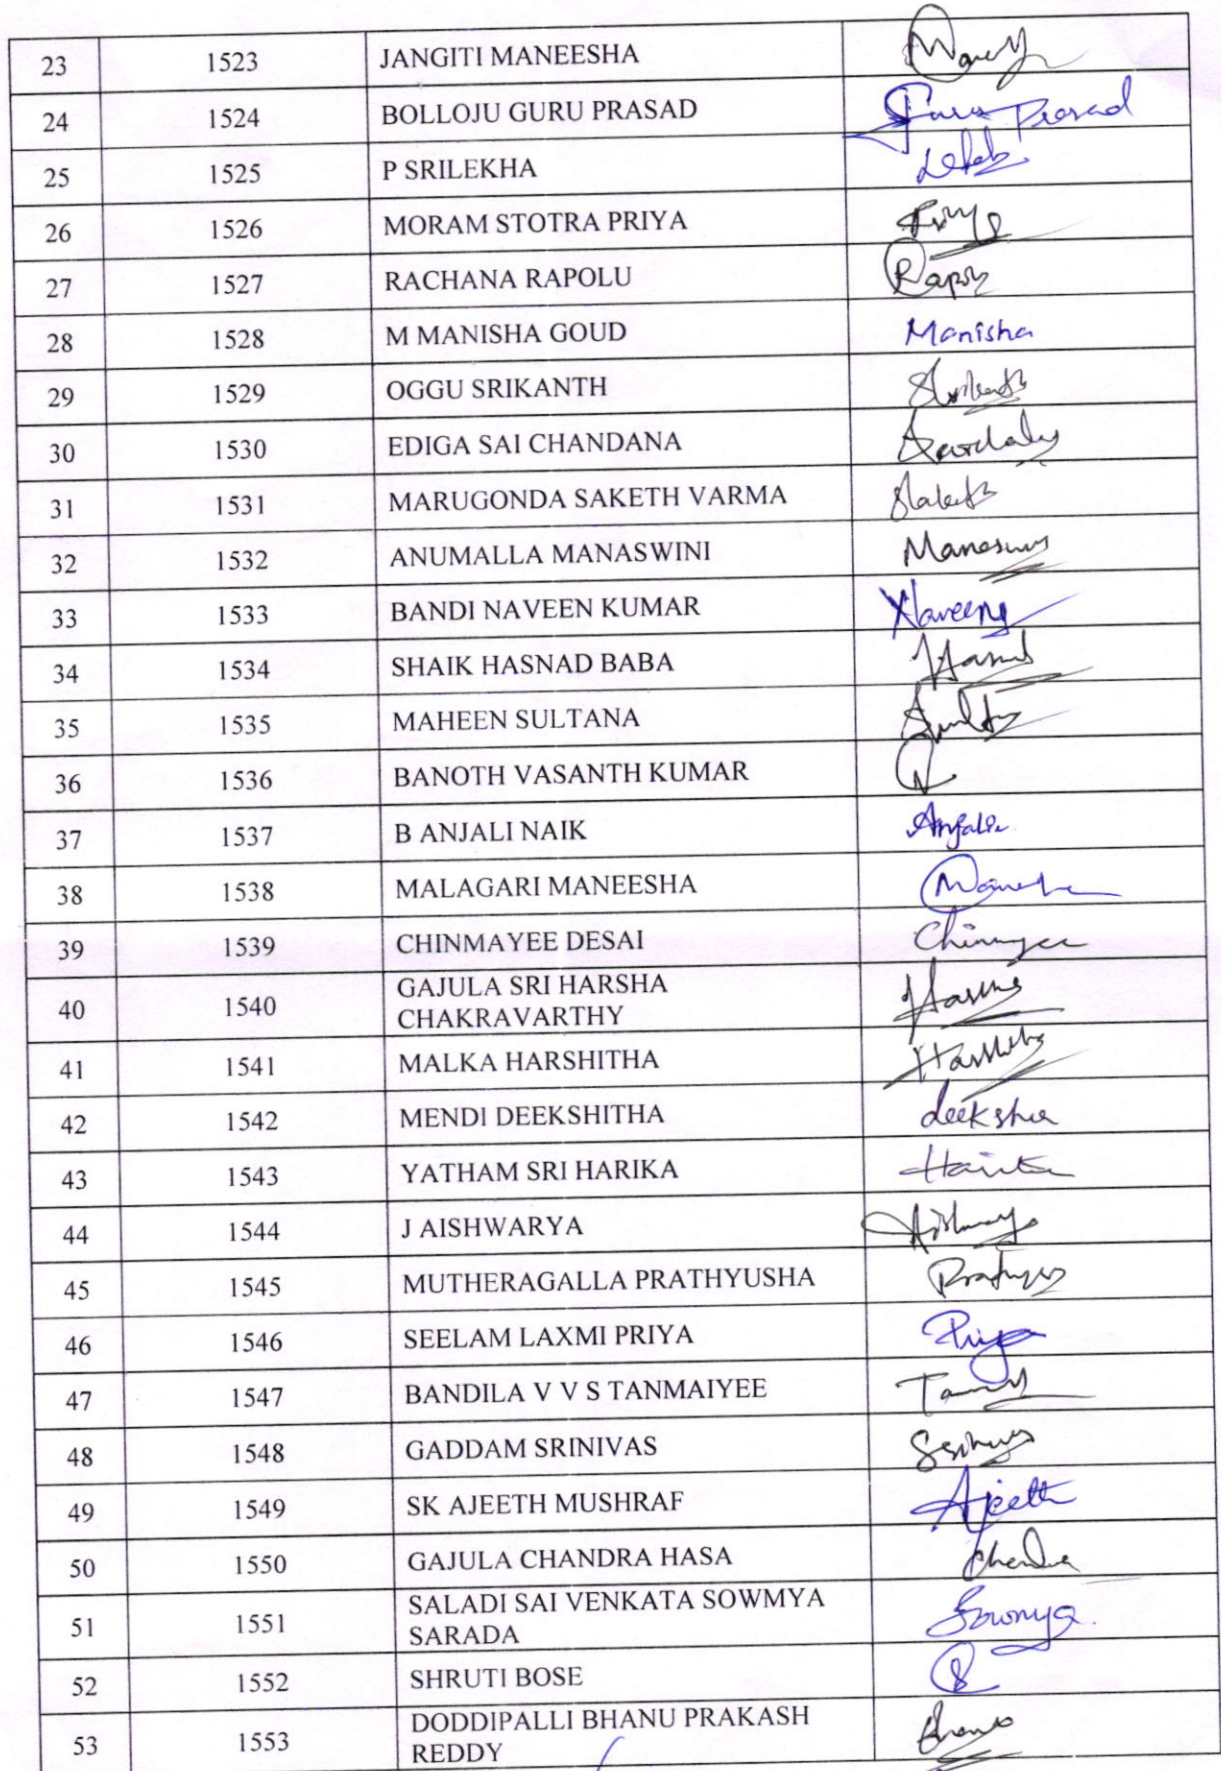 23 1523 JANGITI MANEESHA
24 1524 BOLLOJU GURU PRASAD Guru Prasad
25 1525 P SRILEKHA Lekha
26 1526 MORAM STOTRA PRIYA
27 1527 RACHANA RAPOLU
28 1528 M MANISHA GOUD Manisha
29 1529 OGGU SRIKANTH Srikanth
30 1530 EDIGA SAI CHANDANA
31 1531 MARUGONDA SAKETH VARMA Saketh
32 1532 ANUMALLA MANASWINI
33 1533 BANDI NAVEEN KUMAR Naveen
34 1534 SHAIK HASNAD BABA
35 1535 MAHEEN SULTANA
36 1536 BANOTH VASANTH KUMAR
37 1537 B ANJALI NAIK Anjali
38 1538 MALAGARI MANEESHA
39 1539 CHINMAYEE DESAI
40 1540 GAJULA SRI HARSHA
CHAKRAVARTHY
41 1541 MALKA HARSHITHA
42 1542 MENDI DEEKSHITHA
43 1543 YATHAM SRI HARIKA Harika
44 1544 J AISHWARYA
45 1545 MUTHERAGALLA PRATHYUSHA
46 1546 SEELAM LAXMI PRIYA Priya
47 1547 BANDILA V V S TANMAIYEE
48 1548 GADDAM SRINIVAS
49 1549 SK AJEETH MUSHRAF Ajeeth
50 1550 GAJULA CHANDRA HASA
51 1551 SALADI SAI VENKATA SOWMYA
SARADA Sowmya.
52 1552 SHRUTI BOSE
53 1553 DODDIPALLI BHANU PRAKASH
REDDY